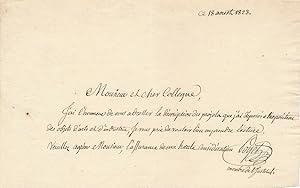 Ce 18 août 1823.
Monsieur et cher Collegue,
J'ai l'honneur de vous adresser la description des projets que j'ai déposés à l'exposition
des objets d'arts et d'industrie, je vous prie de vouloir bien en prendre lecture.
Veuillez agréer Monsieur l'assurance de ma haute considération
membre de l'Institut.